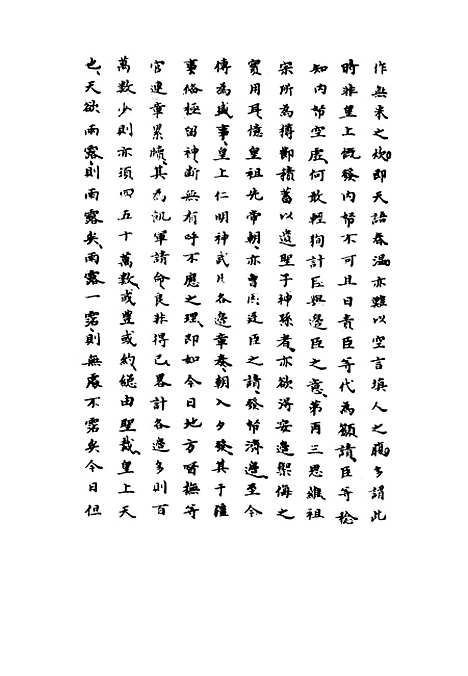 作無米之炊即天語春溫亦難以空言填人之腹多謂此
時非皇上慨發內帑不可且日責臣等代為籲請臣等稔
知內帑空虛何敢輕徇計臣與邊臣之意第再三思維祖
宗所為撙節積蓄以遺聖子神孫者亦欲得安邊禦侮之
實用耳憶皇祖先帝朝亦嘗因廷臣之請發帑濟邊至今
傳為盛事皇上仁明神武凡各邊章奏朝入夕發其于疆
事俗極留神斷無有呼不應之理即如今日地方督撫等
官連章累牘其為飢軍請命良非得已畧計各邊多則百
萬數少則亦須四五十萬數或豐或約總由聖裁皇上天
也天欲雨露則雨露矣雨露一霑則無處不霑矣今日但